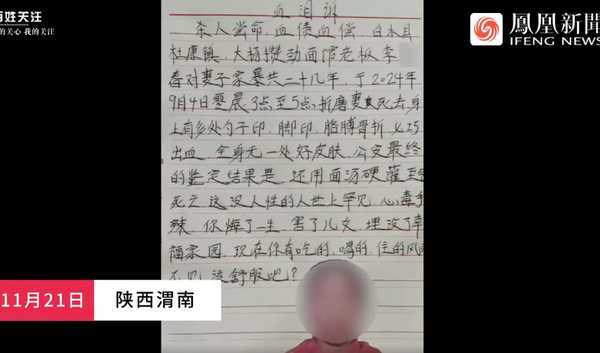 百姓关注
你的关心 我的关注
鳳凰新聞
IFENG NEWS
血泪诉
杀人尝命 血债血偿 白水县
杜康镇 大杨攒动面馆老板李
春对妻子家暴共二十几年，于2024年
9月4日零晨3点至5点，折磨妻 死去，身
上有多处勺子印、脚印、胳膊骨折
出血 全身无一处好皮肤 公安最终
的鉴定结果是 还用面汤硬灌至
死亡 这没人性的人世上罕见 心毒手
辣 你悔了一生 害了儿女 埋没了幸
福家园 现在你有吃的、喝的、住的风
不见 这舒服吧？
11月21日
陕西渭南